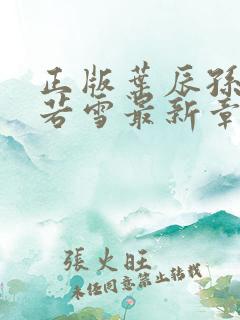 正版葉辰孫
若雪最新章
張火旺
未经同意禁止转载